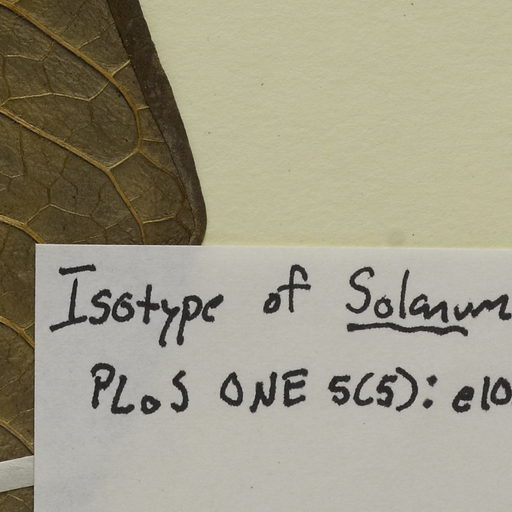 Isotype of Solanum
PLoS ONE 5(5): e10